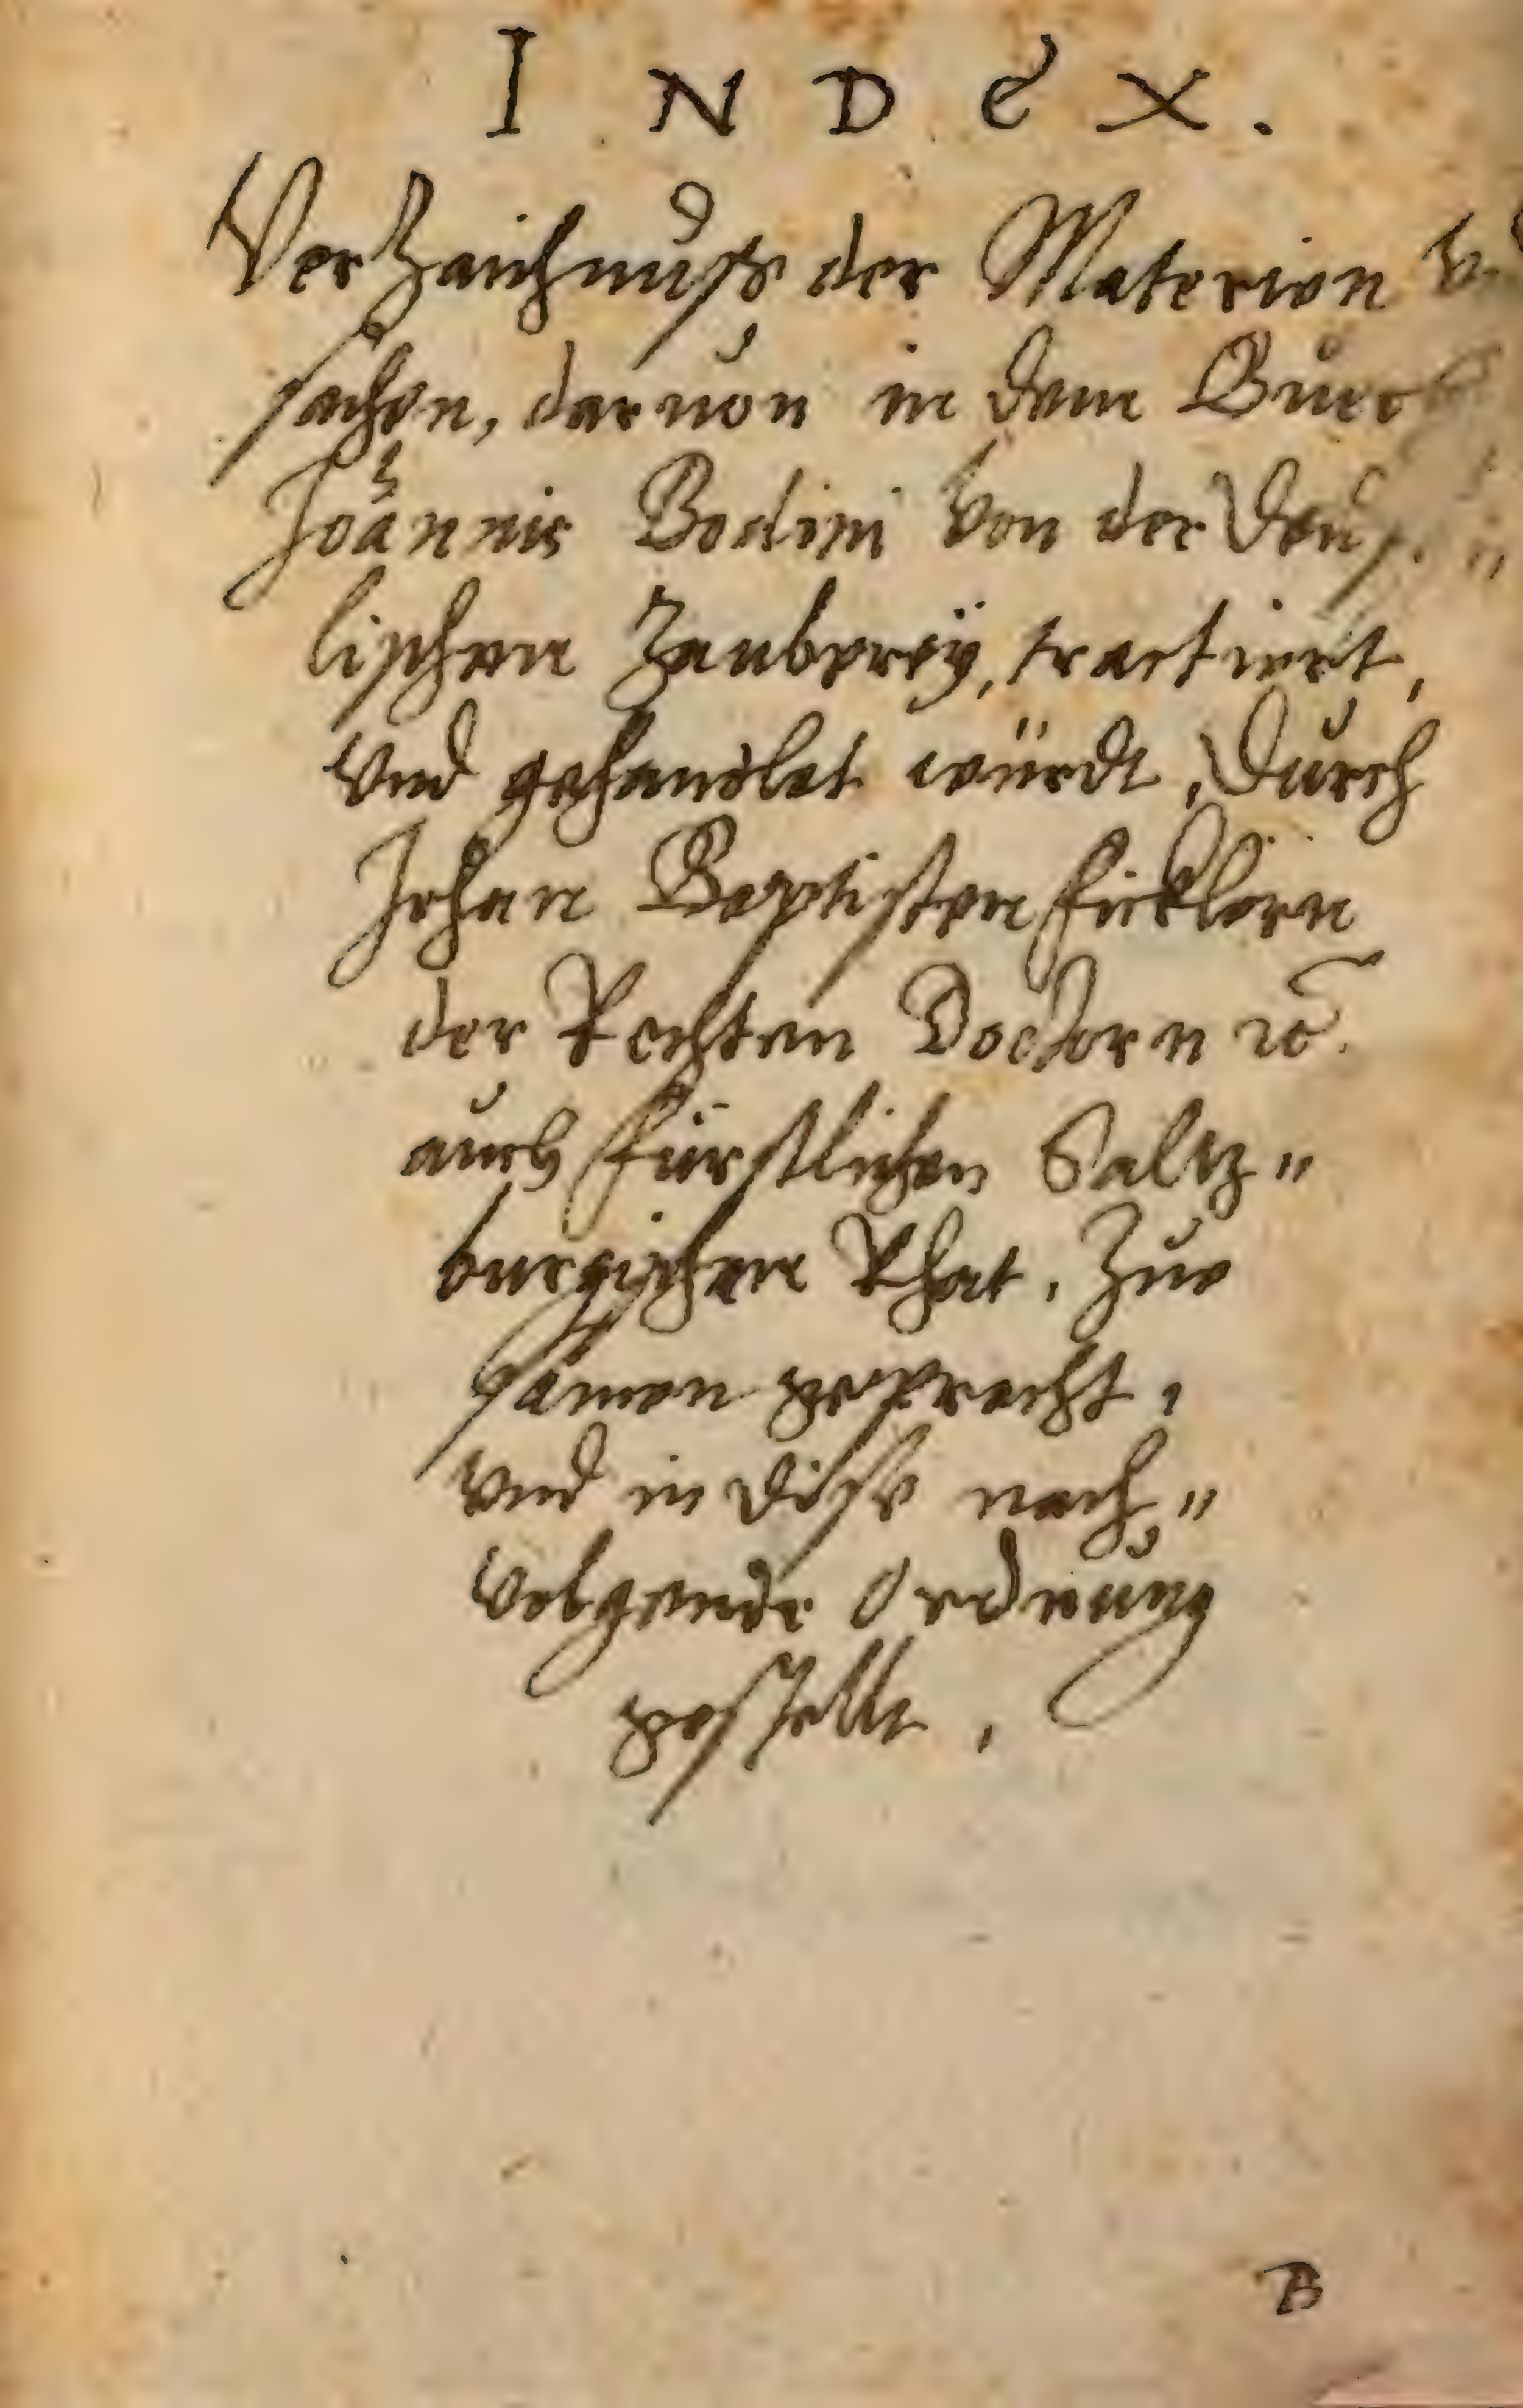 INDEX.
Verzaichnuß der Materien
sachen, daruon in dem Buech
Joannis Bodini von der Teuf„
lischen Zauberey, tractiert,
vnd gehandlet würdt, Durch
Johan Baptisten Ficklern
der Rechten Doctorn ꝛc.
auch fürstlichen Saltz„
burgischen Rhat, Zue
samen gepracht,
vnd in dise nach„
volgende Ordnung
gestellt.
B